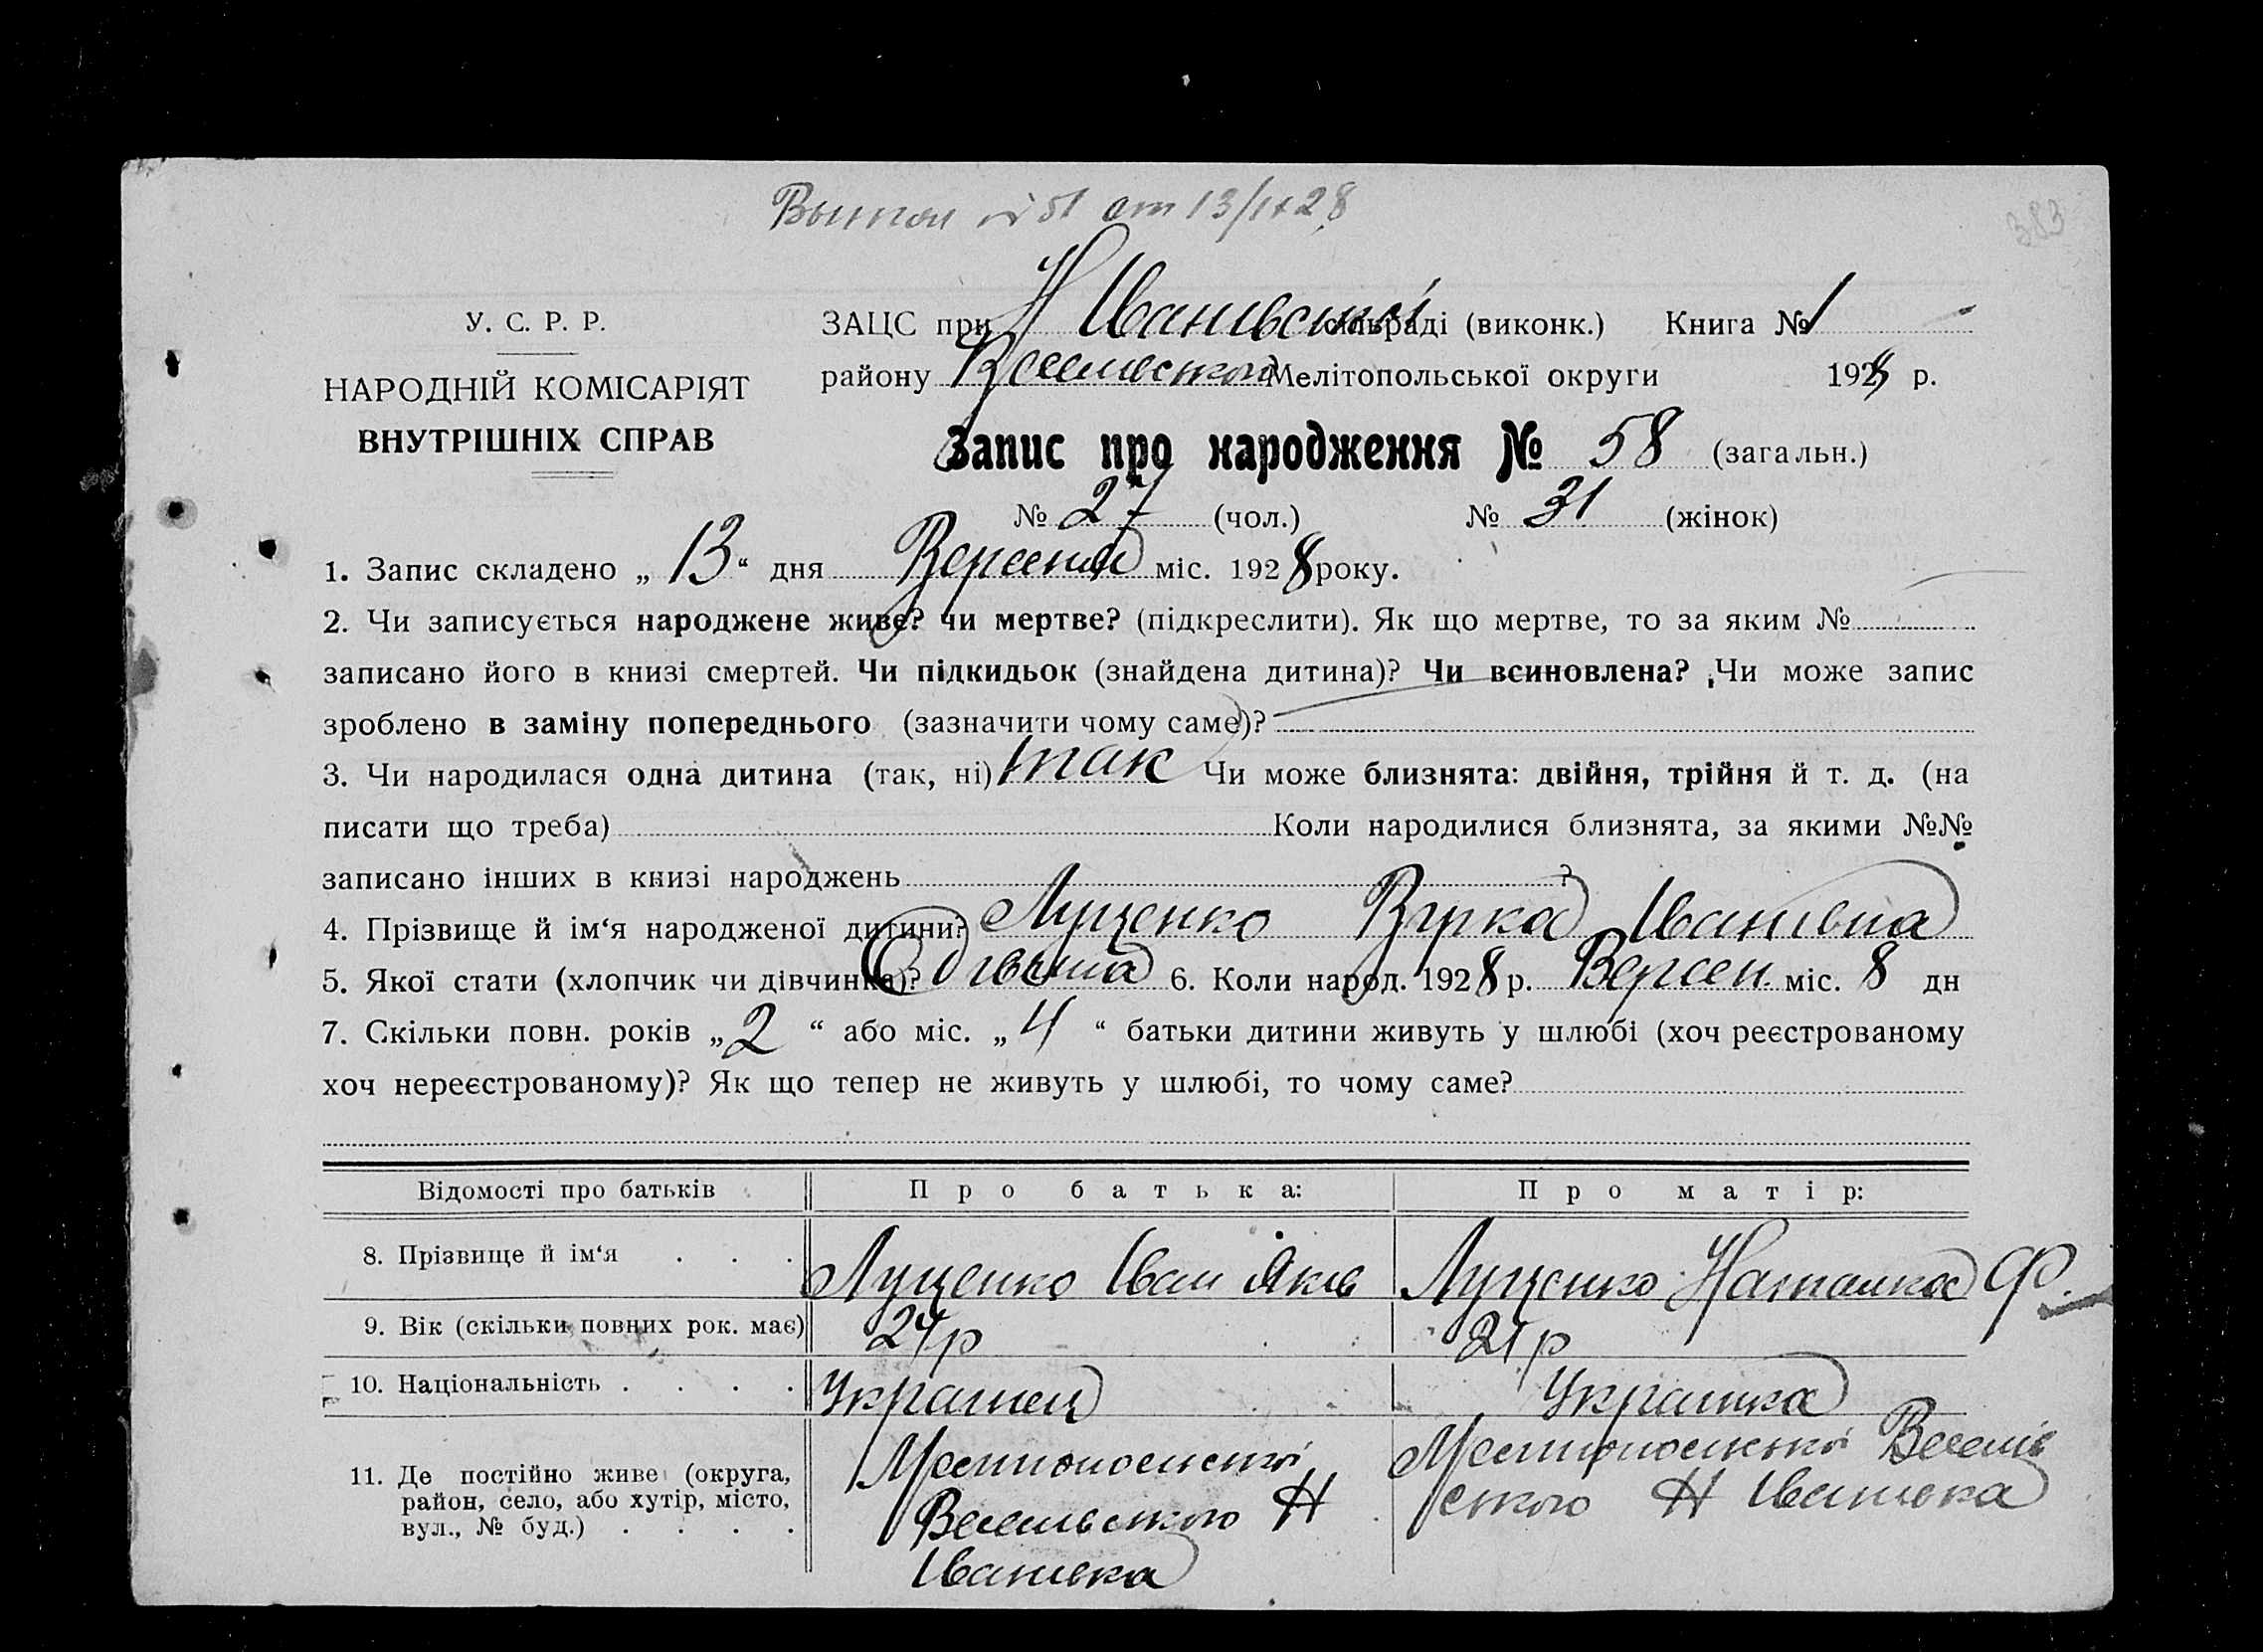 № 51 от 13/IX 28
383
У. С. Р. Р.
НАРОДНІЙ КОМІСАРІЯТ
ВНУТРІШНІХ СПРАВ
ЗАЦС при Н Іванівській сільраді (виконк.) Книга № 1
району Веселівського Мелітопольської округи 1928 р.
Запис про народження № 58 (загальн.)
№ 27 (чол.) № 31 (жінок)
1. Запис складено „ 13 “ дня Вересня міс. 1928 року.
2. Чи записується народжене живе? чи мертве? (підкреслити). Як що мертве, то за яким №
записано його в книзі смертей. Чи підкидьок (знайдена дитина)? Чи всиновлена? Чи може запис
зроблено в заміну попереднього (зазначити чому саме)?
3. Чи народилася одна дитина (так, ні) так Чи може близнята: двійня, трійня й т. д. (на
писати що треба) Коли народилися близнята, за якими №№
записано інших в книзі народжень ?
4. Прізвище й ім‘я народженої дитини? Луценко Вірка Іванівна
5. Якої стати (хлопчик чи дівчинка)? Дівчина 6. Коли народ. 1928 р. Версен. міс. 8 дн
7. Скільки повн. років „ 2 “ або міс. „ 4 “ батьки дитини живуть у шлюбі (хоч реєстрованому
хоч нереєстрованому)? Як що тепер не живуть у шлюбі, то чому саме?
Відомості про батьків Про батька: Про матір:
8. Прізвище й ім‘я . . . Луценко Іван Яків Луценко Наталка Ф.
9. Вік (скільки повних рок. має) 24 р 21 р
10. Національність . . . . Украінец Украінка
11. Де постійно живе (округа,
район, село, або хутір, місто,
вул., № буд.) . . . .
Мелітопольські
Веселівського Н
Іванівка
Мелітопольські Веселів
ського Н Іванівка